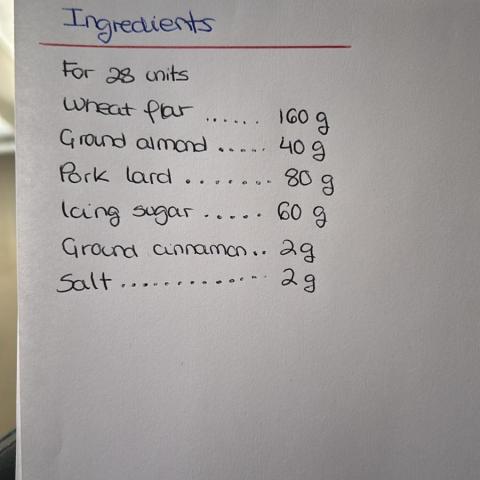 Ingredients
For 28 units
Wheat flour ...... 160 g
Ground almond ..... 40 g
Pork lard ........ 80 g
Icing sugar ..... 60 g
Ground cinnamon.. 2g
Salt ............. 2 g